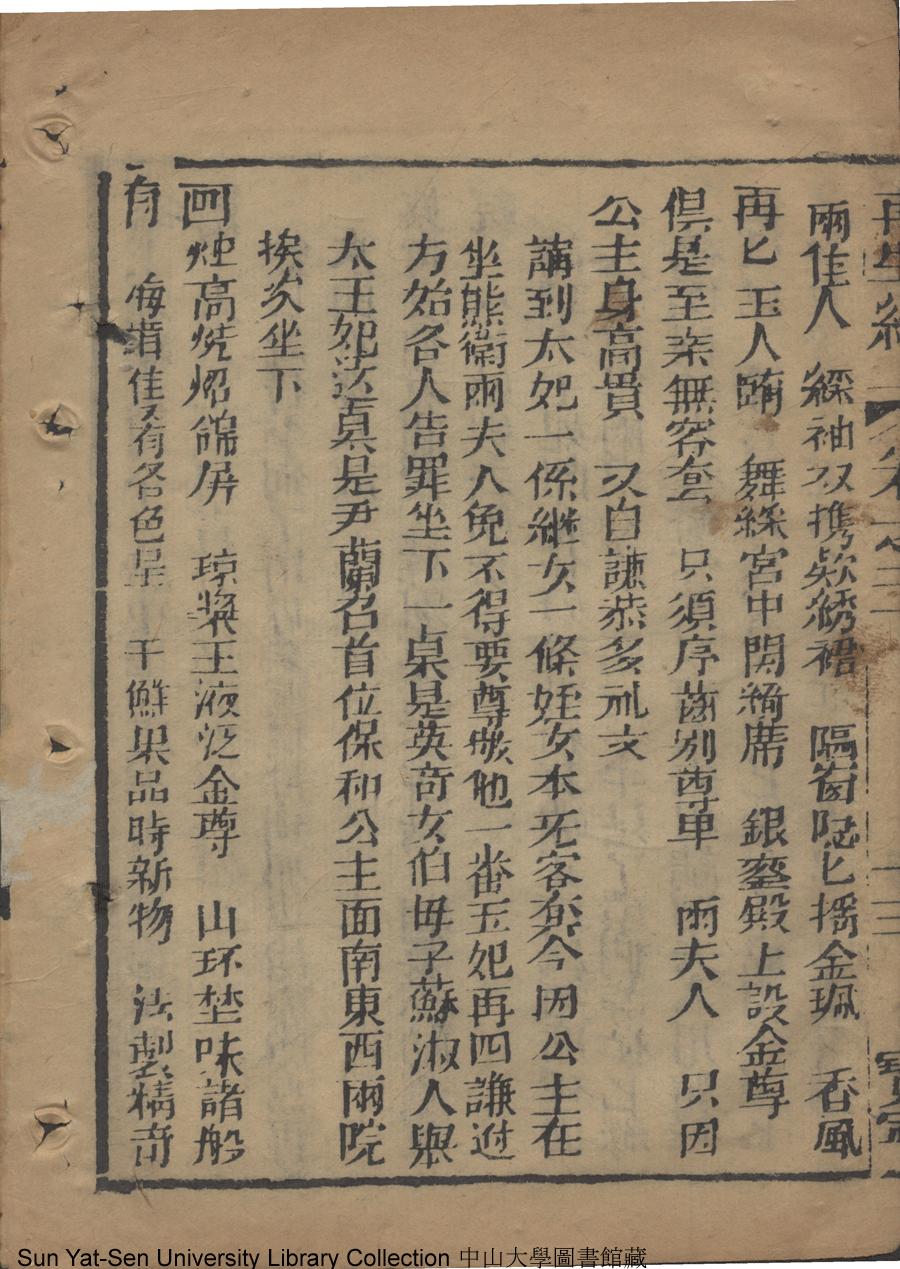 再生緣 卷之 三 寶寧
兩佳人 綵袖双携欵綉裙 隔窗陣匕搖金珮 香風
再匕玉人蹄 舞綵宮中開綺席 銀銮殿上設金尊
俱是至亲無客套 只須序齒別尊卑 兩夫人 只因
公主身高貴 又自謙恭多礼文
講到太妃一係継女一條姪女本旡客套今因公主在
坐熊衞兩夫人免不得要尊敬他一番玉妃再四謙迯
方始各人告罪坐下一桌是英奇女伯母子蘇淑人與
太王妃這桌是尹蘭召首位保和公主面南東西兩院
挨次坐下
画烛高烧炤錦屏 琼漿玉液泛金尊 山环埜味諸般
有 海错佳肴有各色呈 干鮮果品時新物 法製精奇
Sun Yat-Sen University Library Collection 中山大學圖書館藏